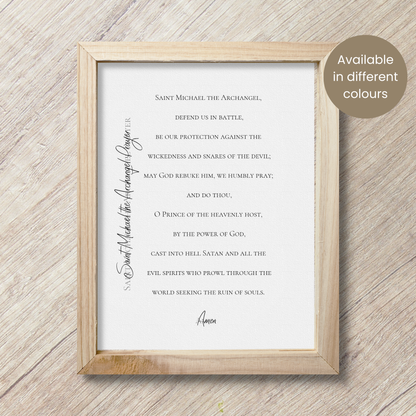 Available
in different
colours
Saint Michael the Archangel Prayer
Saint Michael the Archangel,
defend us in battle,
be our protection against the
wickedness and snares of the devil;
may God rebuke him, we humbly pray;
and do thou,
O Prince of the heavenly host,
by the power of God,
cast into hell Satan and all the
evil spirits who prowl through the
world seeking the ruin of souls.
Amen